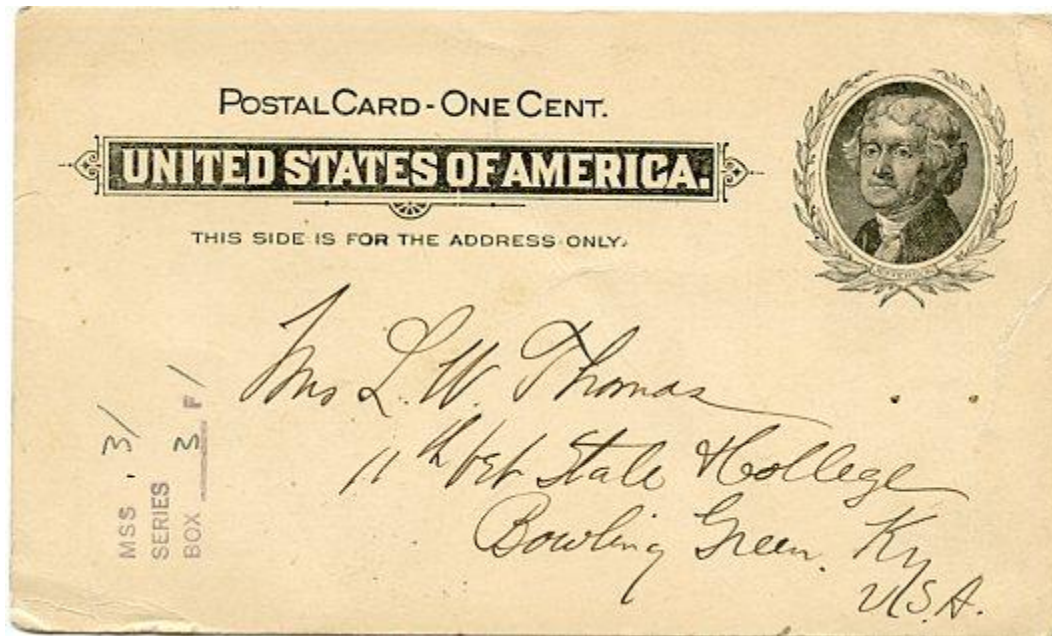 POSTAL CARD - ONE CENT.
UNITED STATES OF AMERICA.
THIS SIDE IS FOR THE ADDRESS ONLY.
JEFFERSON
Mrs L. W. Thomas
11th bet State & College
Bowling Green, Ky
U.S.A.
MSS. 31
SERIES
BOX 3 F1